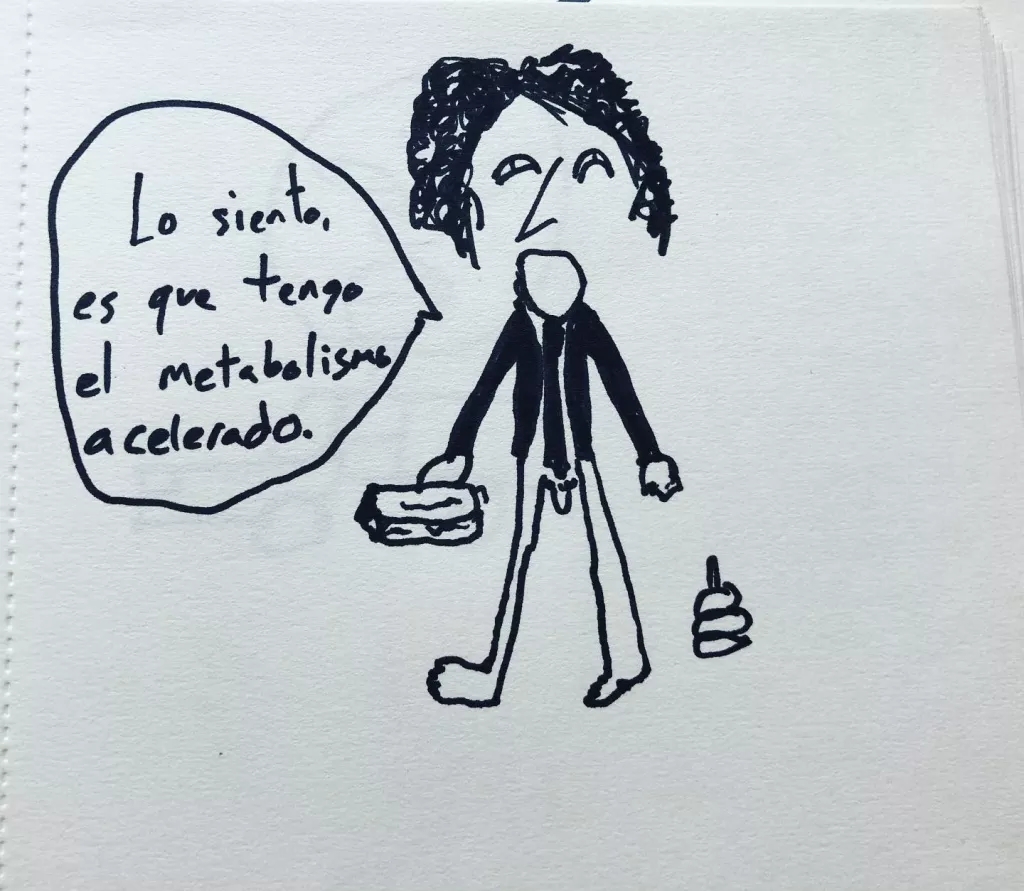 Lo siento,
es que tengo
el metabolismo
acelerado.